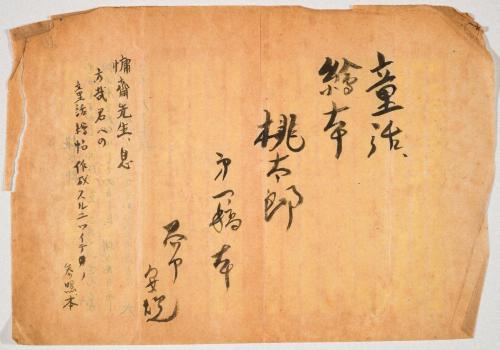 童話、
繪本
桃太郎
第一稿本
安悦
慵齋先生、息
方哉君への
童話繪帖作成スルニツイテノ
参照本